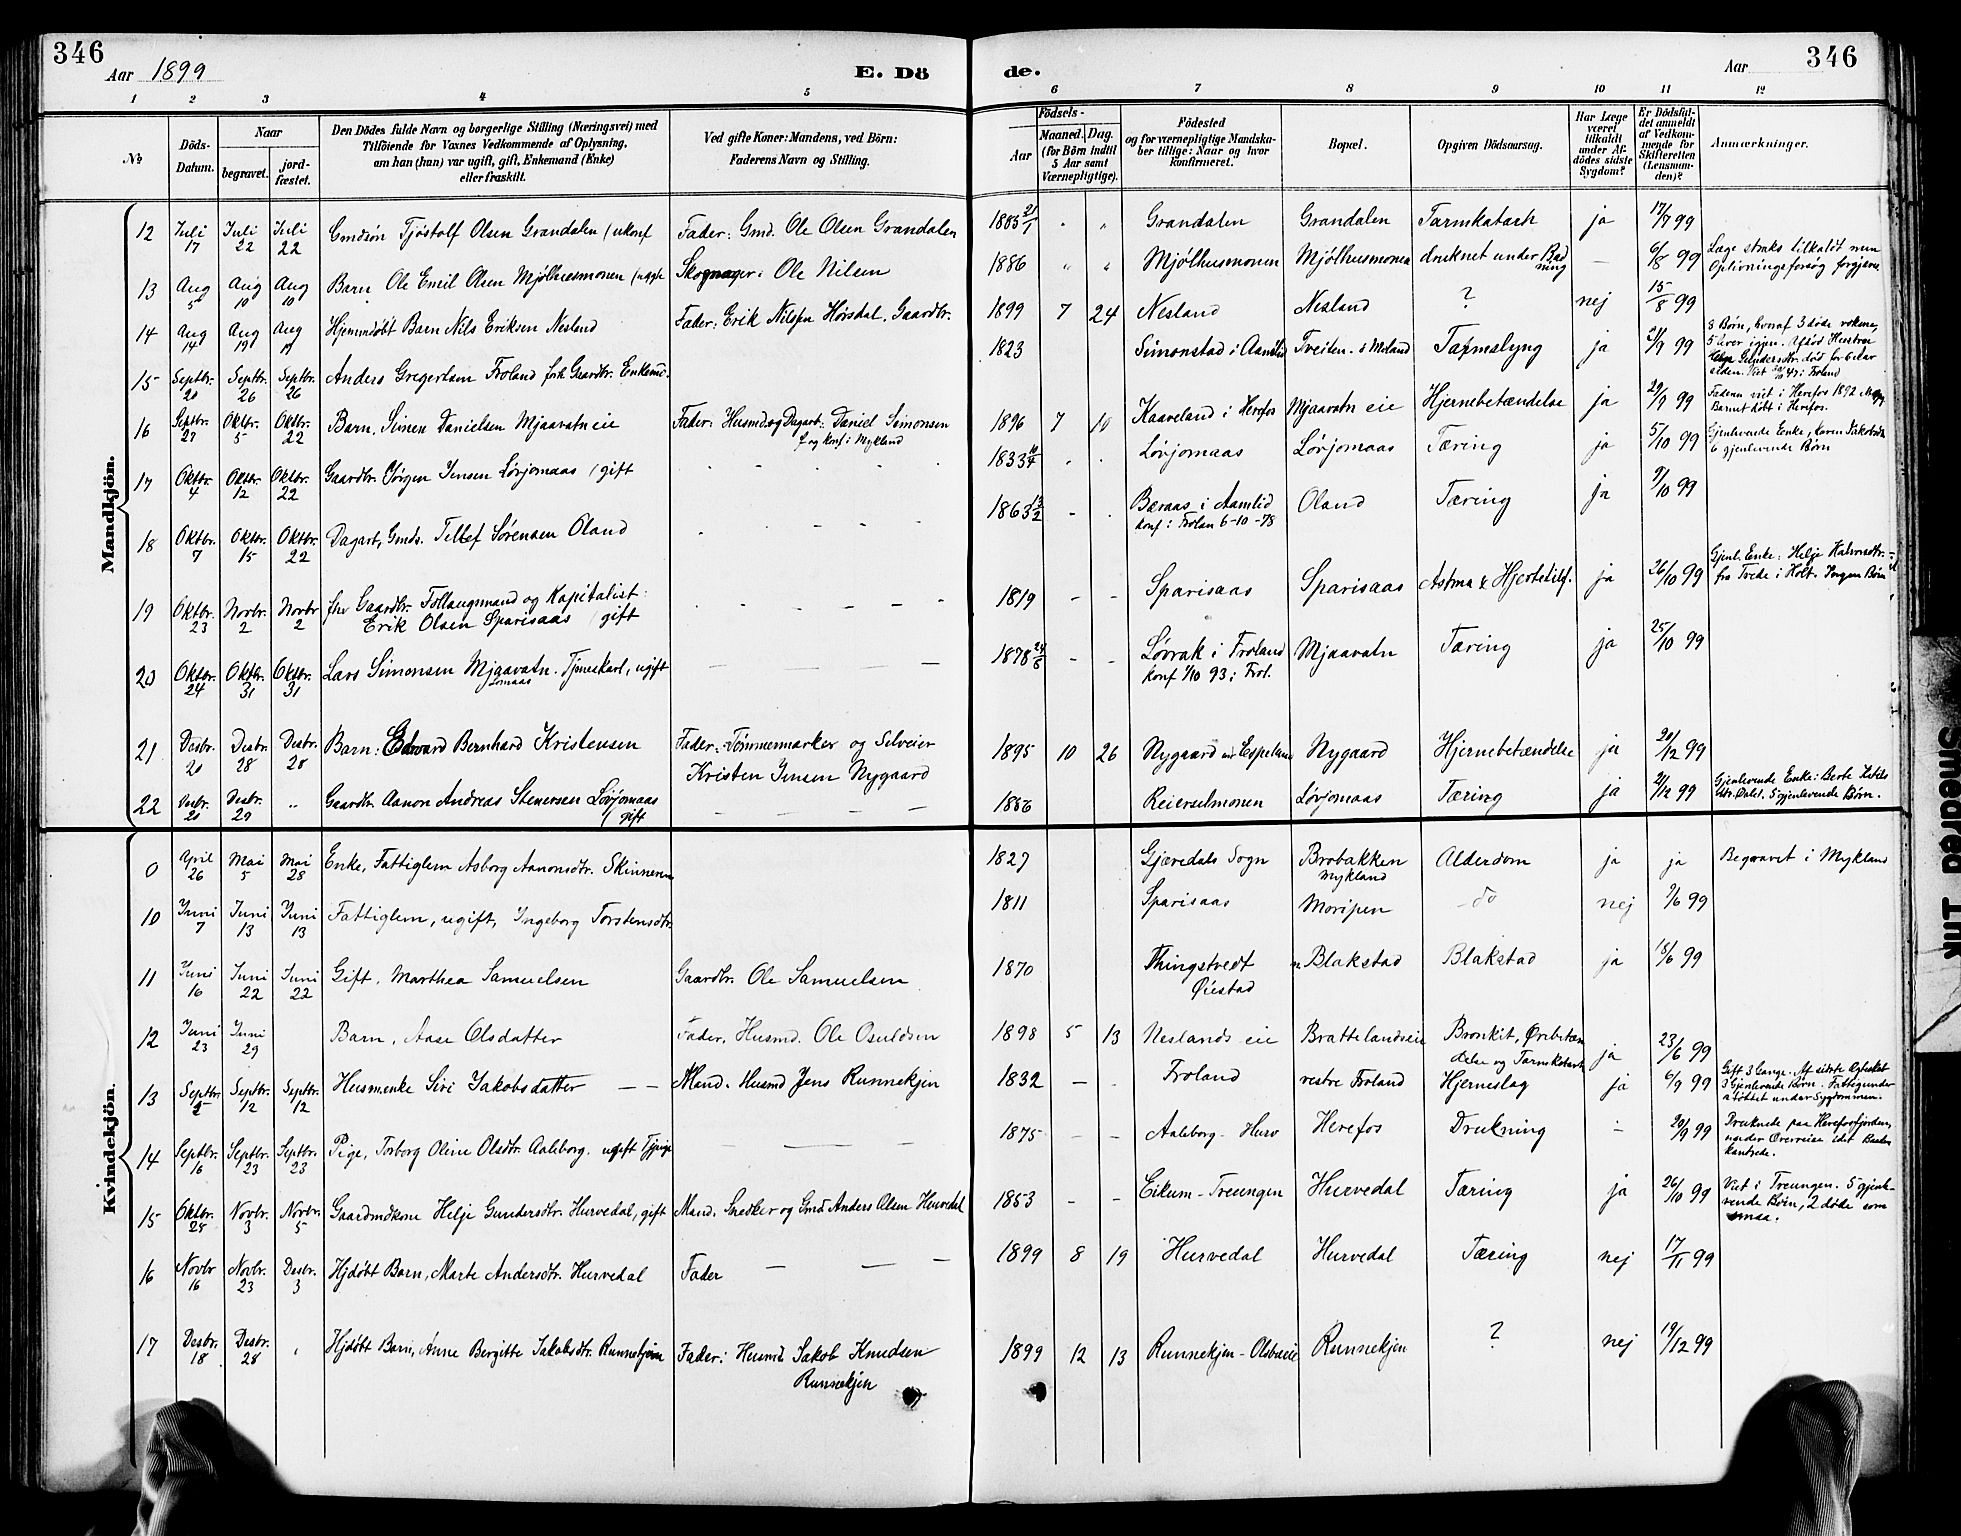 346
Aar 1899
E. Dö
de.
Aar
346
1 2 3 4 5 6 7 8 9 10 11 12
№
Döds-Datum.
Naar
begravet.
jord-fæstet.
Den Dödes fulde Navn og borgerlige Stilling (Næringsvei) med
Tilföiende for Voxnes Vedkommende af Oplysning,
om han (hun) var ugift, gift, Enkemand (Enke)
eller fraskilt.
Ved gifte Koner: Mandens, ved Börn:
Faderens Navn og Stilling.
Födsels-
Aar
Maaned. Dag.
(for Börn indtil
5 Aar samt
Værnepligtige).
Födested
og for værnepligtige Mandska-
ber tillige: Naar og hvor
konfirmeret.
Bopæl.
Opgiven Dödsaarsag.
Har Læge
været
tilkaldt
under Af-
dödes sidste
Sygdom?
Er Dödsfal-
det anmeldt
af Vedkom-
mende for
Skifteretten
(Lensman-
den)?
Anmærkninger.
Mandkjön.
12 Juli 17 Juli 22 Juli 22 Gmdsøn Tjøstolf Olsen Grandalen (ukonf Fader: Gmd. Ole Olsen Grandalen 1885 21/1 " " Grandalen Grandalen Tarmkatarh ja 17/7 99
13 Aug 5 Aug 10 Aug 10 Barn Ole Emil Olsen Mjølhusmonen Ole Nilsen 1886 " " Mjølhusmonen Mjølhusmonen druknet under Badning — 6/8 99 Læge straks tilkaldt men
Oplivningsforsøg forgjæves
14 Aug 14 Aug 19 Aug 19 Hjemmedøbt Barn Nils Eriksen Nesland Fader: Erik Nilsen Hørsdal, Gaardbr. 1899 7 24 Nesland Nesland ? nej 15/8 99
15 Septbr. 20 Septbr. 26 Septbr. 26 Anders Gregertsen Froland forh. Gaardbr. Enkemd. 1823 Simonstad i Aamlid Tveiten Tarmslyng ja 21/9 99 8 Børn, hvoraf 3 døde voksne,
5 lever igjen. Afdød Hustru
Gundersdtr. død for 6 Aar
siden. Viet i Froland
16 Septbr. 27 Oktbr. 5 Oktbr. 22 Barn. Simen Danielsen Mjaavatn eie Fader: Husmd. og Dagarb. Daniel Simonsen
f. og konf. i Mykland 1896 7 10 Kaaveland i Herefos Mjaavatn eie Hjernebetændelse ja 29/9 99 Faderen viet i Herefos 1892
Barnet døbt i Herefos.
17 Oktbr. 4 Oktbr. 12 Oktbr. 22 Gaardbr. Jørgen Jensen Løvjomaas (gift 1833 Løvjomaas Løvjomaas Tæring ja 5/10 99 Gjenlevende Enke, Karen
6 gjenlevende Børn
18 Oktbr. 7 Oktbr. 15 Oktbr. 22 Dagarb, Gmds. Tellef Sørensen Oland 1863 13/2 - Beraas i Aamlid
konf. i Frolan 6-10-78 Oland Tæring ja 9/10 99
19 Oktbr. 23 Novbr. 2 Novbr 2 fhv Gaardbr. og Kapitalist:
Erik Olsen Sparisaas (gift 1819 - - Sparisaas Sparisaas Astma & Hjertelidf. ja 26/10 99 Gjenl. Enke: Helje
fra Tvede i Holt. Ingen Børn
20 Oktbr. 24 Oktbr. 31 Oktbr. 31 Lars Simonsen Mjaavatn. Tjenestkarl, ugift
Lomaas — — — 1878 24/8 - - Løvrak i Froland
konf 1/10 93 i Frol. Mjaavatn Tæring ja 25/10 99
21 Desbr. 20 Desbr. 28 Desbr. 28 Barn: Edvard Bernhard Kristensen Fader: Tømmermærker og Selveier
Kristen Jensen Nygaard 1895 10 26 Nygaard Nygaard Hjernebetændelse ja 20/12 99
22 Desbr. 21 Desbr. 29 " Gaardbr Aanon Andreas Stenersen Løvjomaas
(gift — — — — 1856 Reierselmonen Løvjomaas Tæring ja 21/12 99 Gjenlevende Enke: Berte
5 gjenlevende Børn.
Kvindekjön.
0 April 26 Mai 5 Mai 28 Enke, Fattiglem Asborg Aanonsdtr. 1827 Gjøvedals Sogn Brobakken
Mykland Alderdom ja ja Begravet i Mykland
10 Juni 7 Juni 13 Juni 13 Fattiglem, ugift, Ingeborg Torstensdtr. 1811 Sparisaas Moripen do nej 9/6 99
11 Juni 16 Juni 22 Juni 22 Gift, Marthea Samuelsen Gaardbr. Ole Samuelsen 1870 Thingstvedt
Øiestad Blakstad Blakstad ja 18/6 99
12 Juni 23 Juni 29 Barn, Aase Olsdatter Fader, Husmd. Ole Osuldsen 1898 5 13 Neslands eie Brattelandseie Bronkit, Ørebetæn
delse og Tarmkatarh ja 23/6 99
13 Septbr. 5 Septbr. 12 Septbr. 12 Husmenke Siri Jakobsdatter — — Mand. Husmd Jens Runnekjen 1832 — - Froland vestre Froland Hjerneslag ja 6/9 99 Gift 3 Gange. Af sidste Ægteskab
3 Gjenlevende Børn. Fattigunder
støttet under Sygdommen.
14 Septbr. 16 Septbr. 23 Septbr. 23 Pige, Torborg Oline Olsdtr. Aaleborg. ugift — — — 1875 — - Aaleborg - Herefos Drukning - 20/9 99 Druknede paa Herefosfjorden,
under Overreise idet Baaden
kantrede.
15 Oktbr. 28 Novbr. 3 Novbr. 5 Gaardmdkone Helje Gundersdtr. Hurvedal, gift Mand. Snedker og Gmd Anders Olsen Hurvedal 1853 - - Eikum - Treungen Hurvedal Tæring ja 26/10 99 Viet i Treungen. 5 gjenle-
vende Børn, 2 døde som
smaa.
16 Novbr 16 Novbr. 23 Desbr. 3 Hjdøbt Barn, Marte Andersdtr. Hurvedal Fader — — — 1899 8 19 Hurvedal Hurvedal Tæring nej 17/11 99
17 Desbr. 18 Desbr. 28 " Hjdøbt Barn, Anne Bergitte Jakobsdtr. Runnekjen Fader: Husmd Jakob Knudsen
Runnekjen 1899 12 13 Runnekjen - Runnekjen ? nej 19/12 99